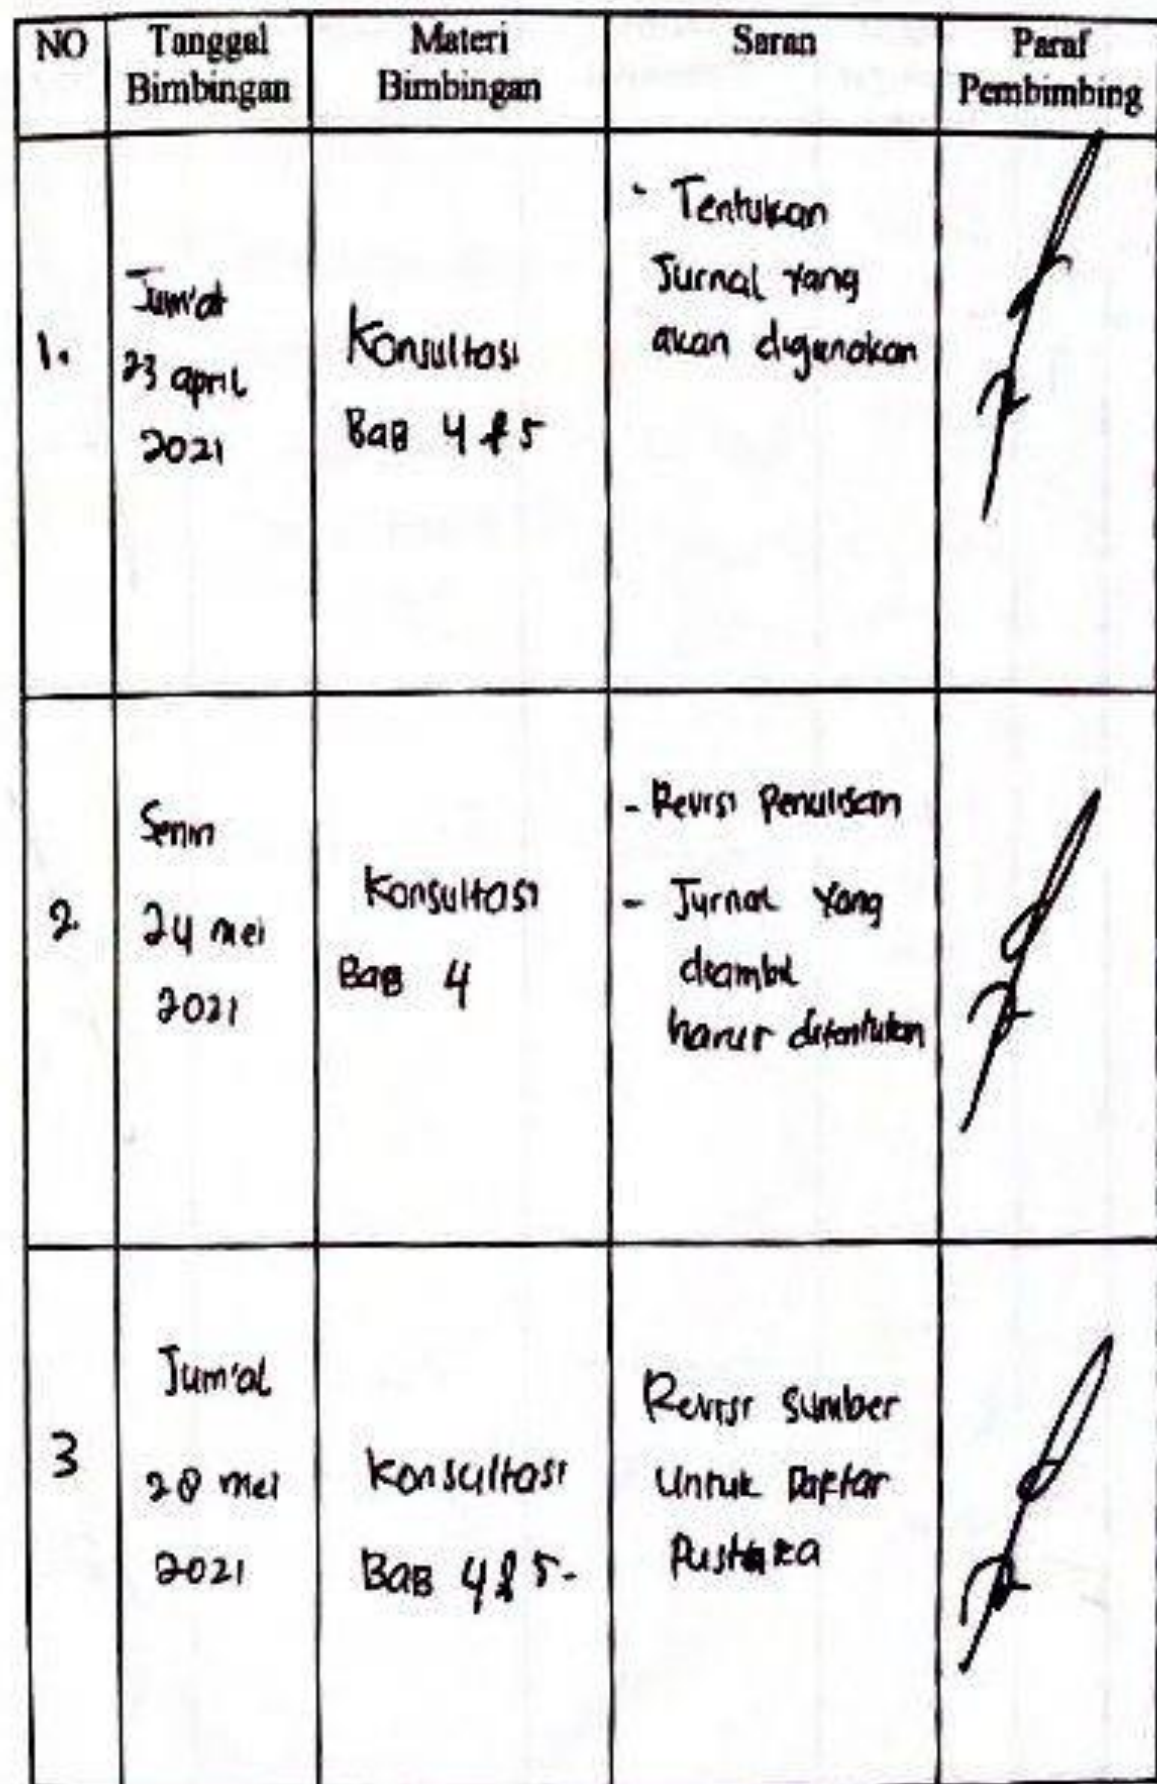 NO
Tanggal
Bimbingan
Materi
Bimbingan
Saran
Paraf
Pembimbing
1.
Jum'at
23 april
2021
Konsultasi
Bab 4 & 5
- Tentukan
Jurnal Yang
akan digunakan
2.
Senin
24 mei
2021
Konsultasi
Bab 4
- Revisi Penulisan
- Jurnal Yang
diambil
harus ditentukan
3
Jum'at
28 mei
2021
Konsultasi
Bab 4 & 5.
Revisi Sumber
Untuk Daftar
Pustaka